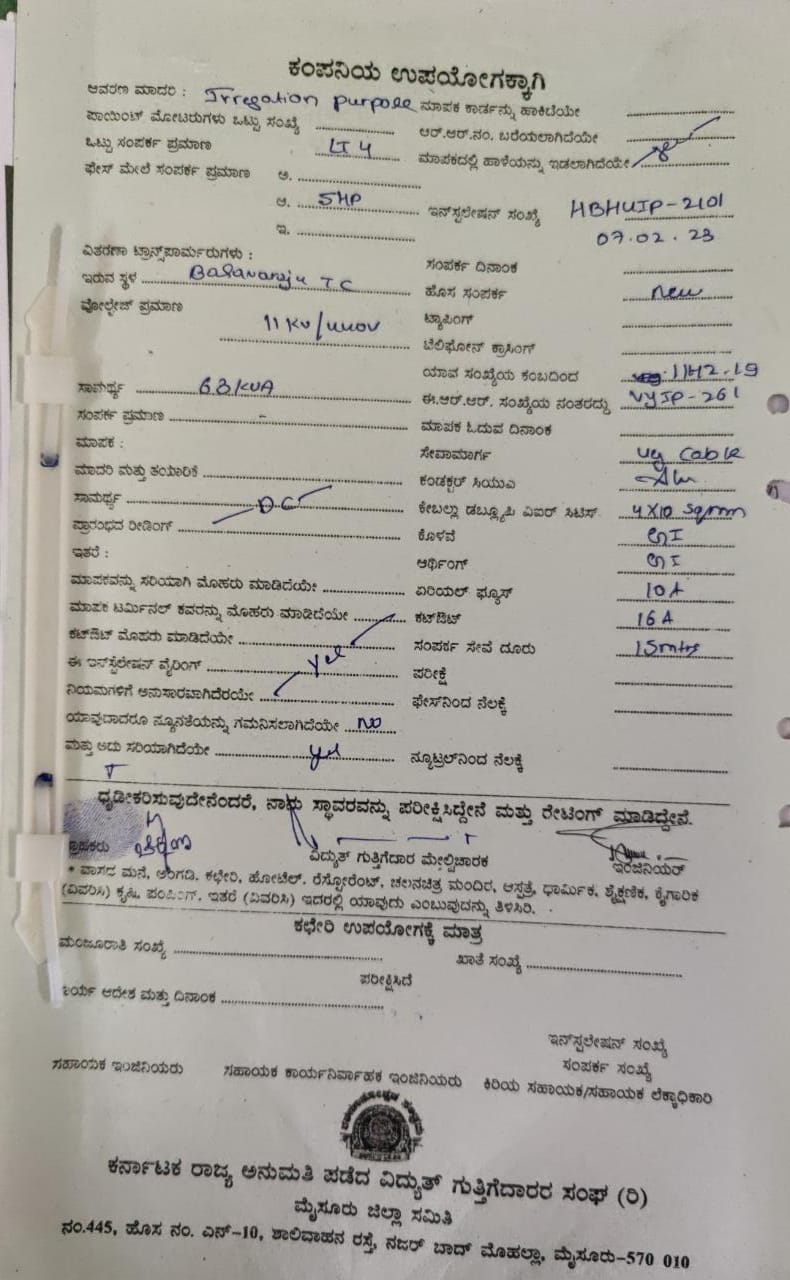 ಕಂಪನಿಯ ಉಪಯೋಗಕ್ಕಾಗಿ
ಆವರಣ ಮಾದರಿ : Irregation purpose ಮಾಪಕ ಕಾರ್ಡನ್ನು ಹಾಕಿದೆಯೇ
ಪಾಯಿಂಟ್ ಮೋಟರುಗಳು ಒಟ್ಟು ಸಂಖ್ಯೆ ಆರ್.ಆರ್.ನಂ. ಬರೆಯಲಾಗಿದೆಯೇ
ಒಟ್ಟು ಸಂಪರ್ಕ ಪ್ರಮಾಣ LT 4 ಮಾಪಕದಲ್ಲಿ ಹಾಳೆಯನ್ನು ಇಡಲಾಗಿದೆಯೇ
ಫೇಸ್ ಮೇಲೆ ಸಂಪರ್ಕ ಪ್ರಮಾಣ ಅ.
ಆ. 5HP ಇನ್‌ಸ್ಟಲೇಷನ್ ಸಂಖ್ಯೆ HBHUIP-2101
ಇ. 07.02.23
ವಿತರಣಾ ಟ್ರಾನ್ಸ್‌ಫಾರ್ಮರುಗಳು : ಸಂಪರ್ಕ ದಿನಾಂಕ
ಇರುವ ಸ್ಥಳ Basavaraju TC ಹೊಸ ಸಂಪರ್ಕ new
ವೋಲ್ಟೇಜ್ ಪ್ರಮಾಣ 11KV/ ಟ್ಯಾಪಿಂಗ್
ಟೆಲಿಫೋನ್ ಕ್ರಾಸಿಂಗ್
ಸಾಮರ್ಥ್ಯ 63KVA ಯಾವ ಸಂಖ್ಯೆಯ ಕಂಬದಿಂದ
ಸಂಪರ್ಕ ಪ್ರಮಾಣ - ಈ.ಆರ್.ಆರ್. ಸಂಖ್ಯೆಯ ನಂತರದ್ದು VYIP-261
ಮಾಪಕ : ಮಾಪಕ ಓದುವ ದಿನಾಂಕ
ಮಾದರಿ ಮತ್ತು ತಯಾರಿಕೆ ಸೇವಾಮಾರ್ಗ ug cable
ಸಾಮರ್ಥ್ಯ DC ಕಂಡಕ್ಟರ್ ಸಿಯುಎ Alu
ಪ್ರಾರಂಭದ ರೀಡಿಂಗ್ ಕೇಬಲ್ಲಾ ಡಬ್ಲ್ಯೂಪಿ ವಿಐರ್ ಸಿಟಿಸ್ 4X10 Sqmm
ಇತರೆ : ಕೊಳವೆ GI
ಆರ್ಥಿಂಗ್ GI
ಮಾಪಕವನ್ನು ಸರಿಯಾಗಿ ಮೊಹರು ಮಾಡಿದೆಯೇ ಏರಿಯಲ್ ಫ್ಯೂಸ್ 10A
ಮಾಪಕ ಟರ್ಮಿನಲ್ ಕವರನ್ನು ಮೊಹರು ಮಾಡಿದೆಯೇ ಕಟ್‌ಔಟ್ 16A
ಕಟ್‌ಔಟ್ ಮೊಹರು ಮಾಡಿದೆಯೇ ಸಂಪರ್ಕ ಸೇವೆ ದೂರು 15mtrs
ಈ ಇನ್‌ಸ್ಟಲೇಷನ್ ವೈರಿಂಗ್ yes ಪರೀಕ್ಷೆ
ನಿಯಮಗಳಿಗೆ ಅನುಸಾರವಾಗಿದೆರೆಯೇ ಫೇಸ್‌ನಿಂದ ನೆಲಕ್ಕೆ
ಯಾವುದಾದರೂ ನ್ಯೂನತೆಯನ್ನು ಗಮನಿಸಲಾಗಿದೆಯೇ No
ಮತ್ತು ಅದು ಸರಿಯಾಗಿದೆಯೇ yes ನ್ಯೂಟ್ರಲ್‌ನಿಂದ ನೆಲಕ್ಕೆ
ಧೃಡೀಕರಿಸುವುದೇನೆಂದರೆ, ನಾವು ಸ್ಥಾವರವನ್ನು ಪರೀಕ್ಷಿಸಿದ್ದೇನೆ ಮತ್ತು ರೇಟಿಂಗ್ ಮಾಡಿದ್ದೇನೆ.
ಗ್ರಾಹಕರು ವಿದ್ಯುತ್ ಗುತ್ತಿಗೆದಾರ ಮೇಲ್ವಿಚಾರಕ ಇಂಜಿನಿಯರ್
* ವಾಸದ ಮನೆ, ಅಂಗಡಿ, ಕಛೇರಿ, ಹೋಟೆಲ್. ರೆಸ್ಟೋರೆಂಟ್, ಚಲನಚಿತ್ರ ಮಂದಿರ, ಆಸ್ಪತ್ರೆ, ಧಾರ್ಮಿಕ, ಶೈಕ್ಷಣಿಕ, ಕೈಗಾರಿಕ
(ವಿವರಿಸಿ) ಕೃಷಿ, ಪಂಪಿಂಗ್, ಇತರೆ (ವಿವರಿಸಿ) ಇದರಲ್ಲಿ ಯಾವುದು ಎಂಬುವುದನ್ನು ತಿಳಿಸಿರಿ.
ಕಛೇರಿ ಉಪಯೋಗಕ್ಕೆ ಮಾತ್ರ
ಮಂಜೂರಾತಿ ಸಂಖ್ಯೆ ಖಾತೆ ಸಂಖ್ಯೆ
ಪರೀಕ್ಷಿಸಿದೆ
ಆದೇಶ ಮತ್ತು ದಿನಾಂಕ
ಇನ್‌ಸ್ಟಲೇಷನ್ ಸಂಖ್ಯೆ
ಸಂಪರ್ಕ ಸಂಖ್ಯೆ
ಸಹಾಯಕ ಇಂಜಿನಿಯರು ಸಹಾಯಕ ಕಾರ್ಯನಿರ್ವಾಹಕ ಇಂಜಿನಿಯರು ಕಿರಿಯ ಸಹಾಯಕ/ಸಹಾಯಕ ಲೆಕ್ಕಾಧಿಕಾರಿ
ಕರ್ನಾಟಕ ರಾಜ್ಯ ಅನುಮತಿ ಪಡೆದ ವಿದ್ಯುತ್ ಗುತ್ತಿಗೆದಾರರ ಸಂಘ (ರಿ)
ಮೈಸೂರು ಜಿಲ್ಲಾ ಸಮಿತಿ
ನಂ.445, ಹೊಸ ನಂ. ಎನ್-10, ಶಾಲಿವಾಹನ ರಸ್ತೆ, ನಜರ್ ಬಾದ್ ಮೊಹಲ್ಲಾ, ಮೈಸೂರು-570 010